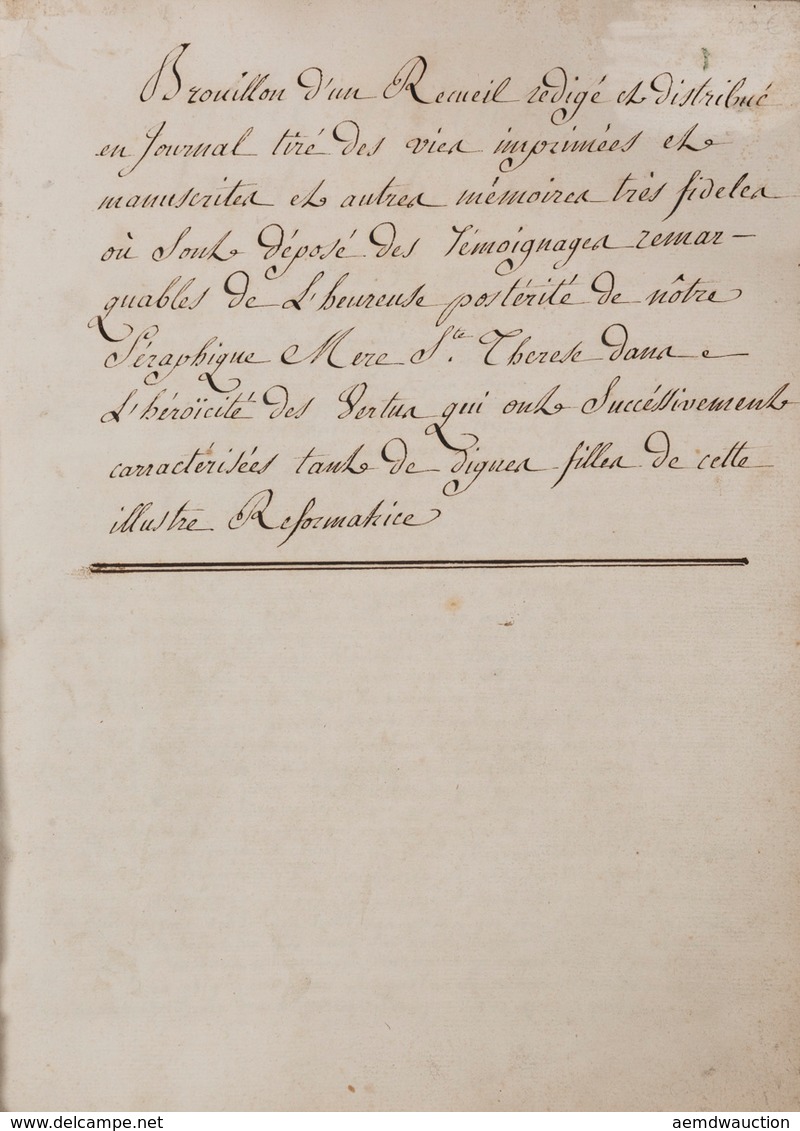 Brouillon d'un Recueil redigé et distribué
en Journal tiré des vies imprimées et
manuscrites et autres mémoires très fideles
où sont déposé des Témoignages remar-
quables de L'heureuse postérité de nôtre
Séraphique Mere Ste. Therese dans
L'héroïcité des Vertus qui ont Succéssivement
carractérisées tant de dignes filles de cette
illustre Reformatrice
www.delcampe.net
aemdwauction